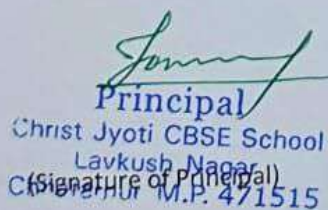 Principal
Christ Jyoti CBSE School
Lavkush Nagar
(Signature of Principal)
Chhatarpur M.P. 471515